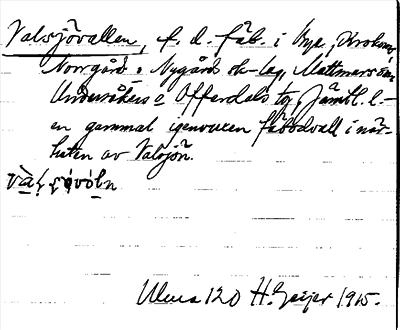 Valsjövallen, f. d. fäb. i Bye, Krokoms,
Norrgård o Nygård sk-lag, Mattmars sn
Undersåkers o Offerdals tg, Jämtl. l.-
en gammal igenvuxen fäbodvall i när-
heten av Valsjön.
Ulma 120 H. Geijer 1915.